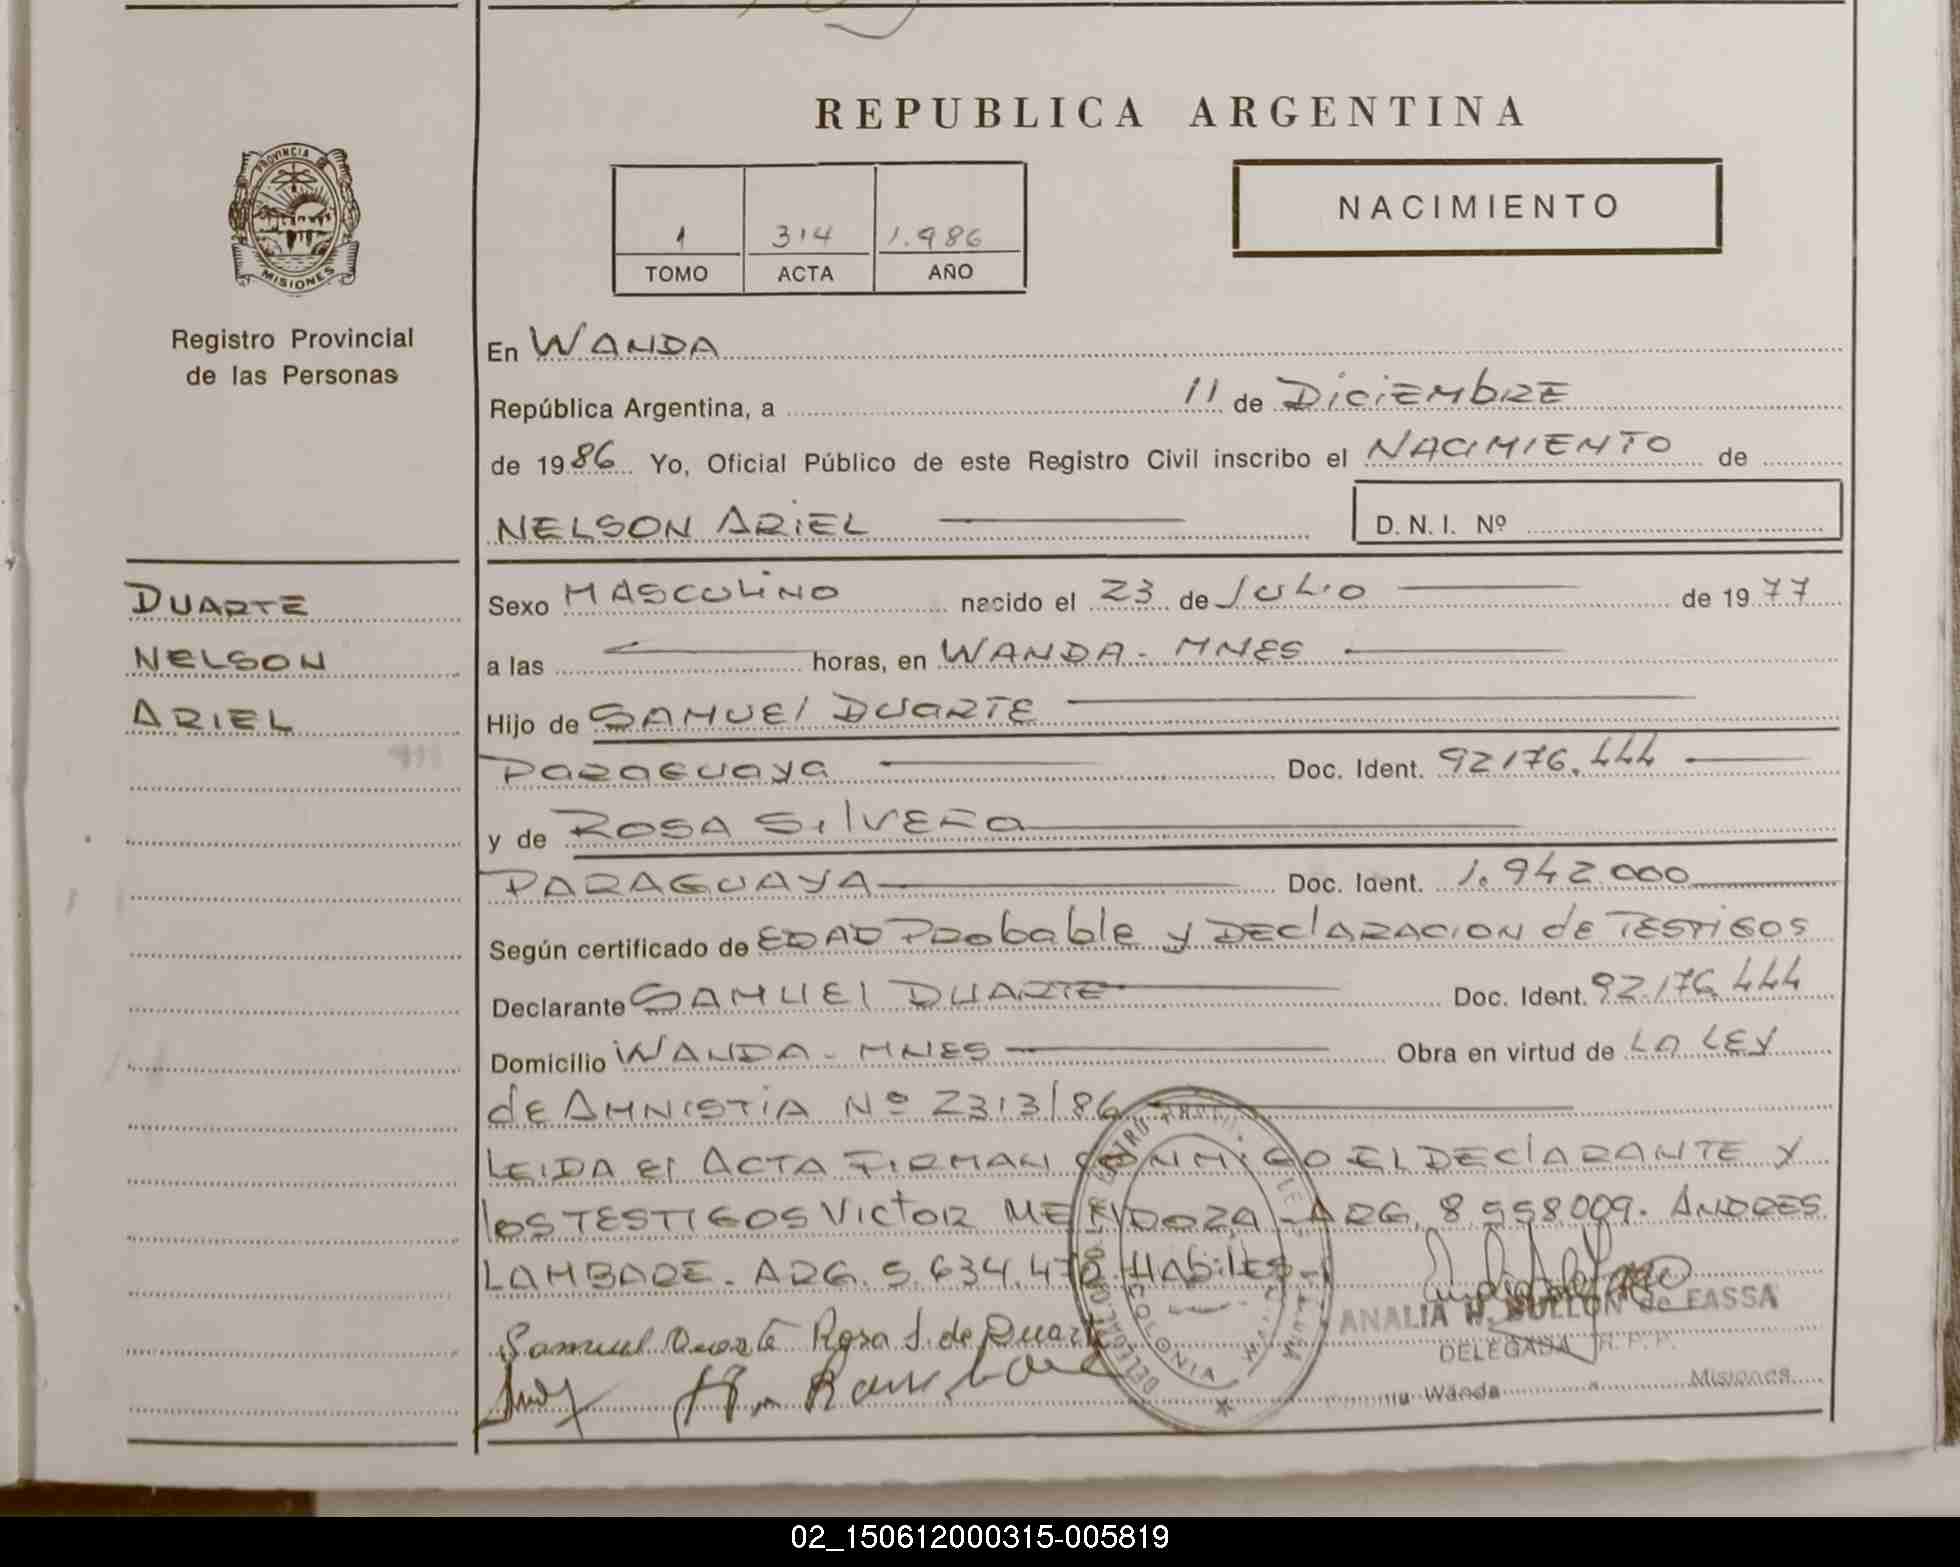 REPUBLICA ARGENTINA
PROVINCIA DE
MISIONES
Registro Provincial
de las Personas
1 314 1.986
TOMO ACTA AÑO
NACIMIENTO
En WANDA
República Argentina, a 11 de DiciEMbRE
de 1986 Yo, Oficial Público de este Registro Civil inscribo el NACIMIENTO de
NELSON ARiEL
D. N. I. Nº
DUARTE
NELSON
ARIEL
Sexo MASCULINO nacido el 23 de JULIO de 1977
a las horas, en WANDA - MNES
Hijo de SAMUEl DUARTE
PARAGUAYA Doc. Ident. 92176.444
y de ROSA SilVERA
PARAGUAYA Doc. Ident. 1.942.000
Según certificado de EDAD PRObable y DEClARACION dE TESTIGOS
Declarante SAMUEl DUARTE Doc. Ident. 92.176.444
Domicilio WANDA - MNES Obra en virtud de LA LEY
dE AMNISTIA Nº 2313/86
LEIDA El ACTA FIRMAN CONMIGO El DEClARANTE Y
los TESTIGOS VICTOR MENDOZA - ARG. 8 558009. ANDRES
LAMBARE. ARG. 5.634.472. HAbiles
Samuel Duarte Rosa S. de Duarte
ANALIA H. BULLON de FASSA
DELEGADA R. P. P.
Wanda Misiones
02_150612000315-005819